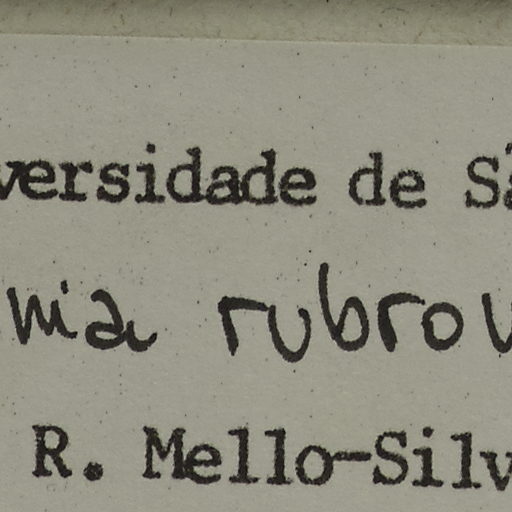 versidade de Sã
nia rubrov
R. Mello-Silv